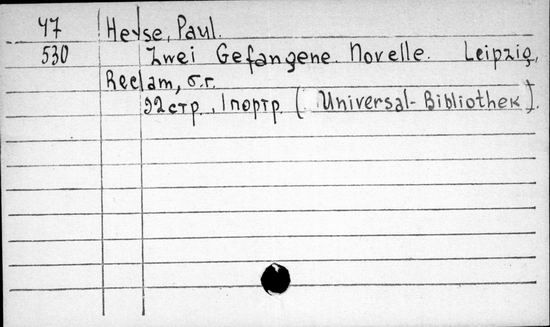 47 Heyse, Paul.
530 Zwei Gefangene. Novelle. Leipzig,
Reclam, б.г.
92 стр., 1 портр. (Universal-Bibliothek).